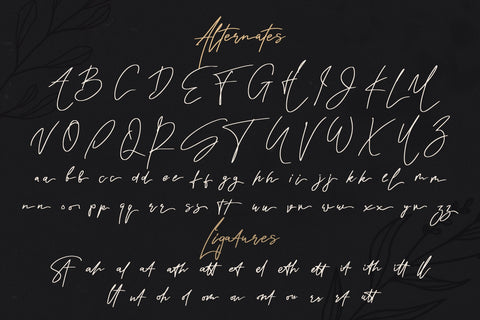 Alternates
A B C D E F G H I J K L M
N O P Q R S T U V W X Y Z
aa bb cc dd ee ff gg hh ii jj kk ll mm
nn oo pp qq rr ss tt uu vv ww xx yy zz
Ligatures
St ah al at ath att et el eth ett it ith itt ll
tt ut oh ol om on ont ou rs rt utt